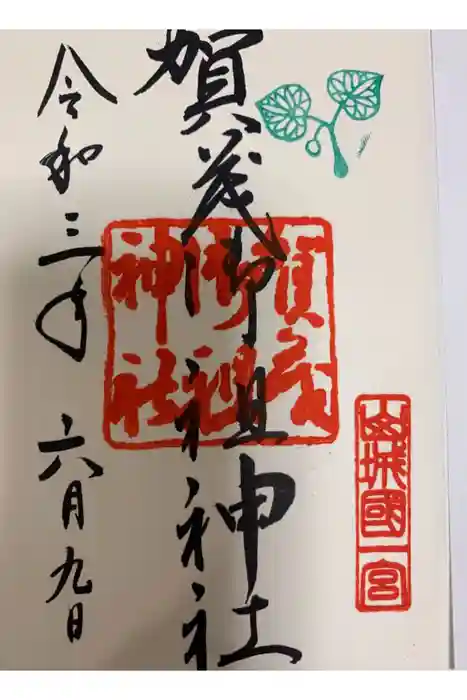 山城國一宮
賀茂御祖神社
賀茂
御祖
神社
令和三年六月九日